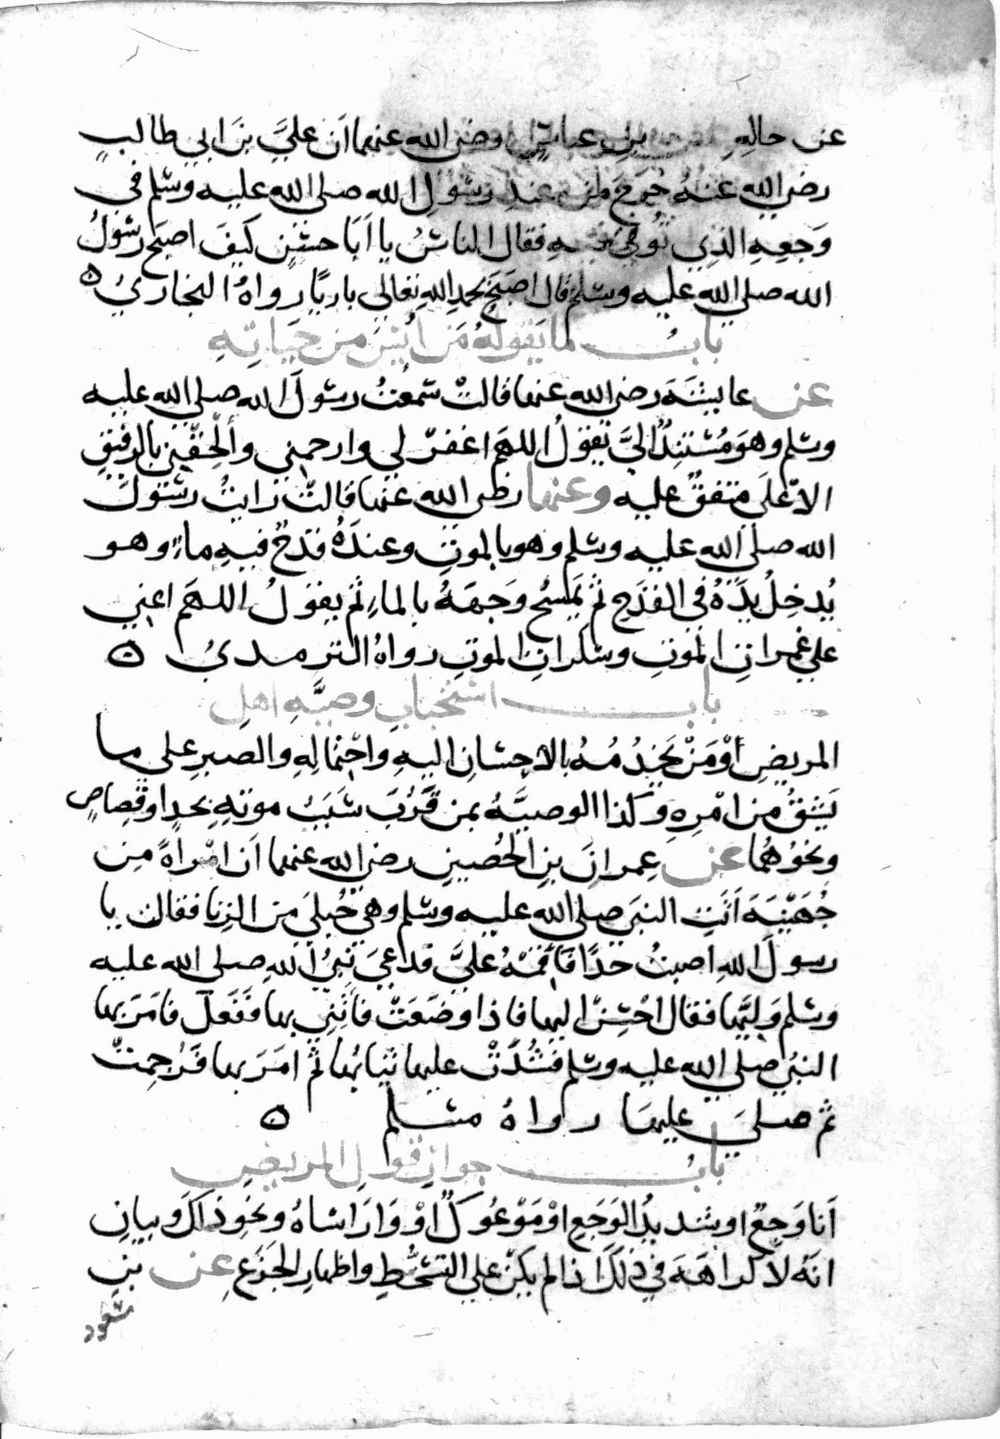 عن حاله عن بن عباس رضي الله عنهما أن عليَّ بنَ ابي طالبٍ
رضي الله عنهُ خرجَ من عندِ رسُولِ الله صلى الله عليه وسلم في
وَجعِهِ الذي تُوفي فيه فقال الناسُ يا اَبَا حسَنٍ كيفَ اصبحَ رسُولُ
الله صلي الله عليه وسلم قال اصبَحَ بحمدِ اللهِ تعالى باريًا رواهُ البخاريُ ه
بابُ ما يقولهُ مَن أُيسَ من حَياتِهِ
عن عايشَةَ رضي الله عنها قالتْ سمعتُ رسُولَ الله صلى الله عليه
وسلم وهوَ مُسْتنِدٌ اليَّ يقولُ اللهمَ اغفرْ لي وارحمني وألحِقْني بالرفيقِ
الاعْلَى متفقٌ عليه وعنها رضي الله عنها قالتْ رَايتُ رسُولَ
الله صلى الله عليه وسلم وهو بالموتِ وعندَهُ قدَحٌ فيهِ ماءٌ وهو
يُدخِلُ يدَهُ في القدَحِ ثم يَمسَحُ وَجهَهُ بالماءِ ثم يقولُ اللهمَ اعني
علي غمراتِ الموتِ وسَكراتِ الموتِ رواهُ الترمدي ه
بابُ استحبابِ وصيَّهِ اهلِ
المريضِ أوْ مَنْ يَخدُمُهُ بالاحسَانِ اليهِ واحْتمالِهِ والصبرِ على ما
يَشقُ من امْرِهِ وكذا الوصيَّهُ بمن قَرُبَ سَبَبُ موتهِ بحدٍ او قصَاصٍ
ونحوُهما عن عِمرانَ بنِ الحُصينِ رضي الله عنهما اَن امْرَاةً مِن
جُهَيْنَةَ اَتَتِ النبيَ صلى الله عليه وسلم وهي حُبلىَ من الزنا فقالت يا
رسولَ اللهِ اصبتُ حدًا فَاَقمْهُ عليَّ فدَاعىَ نبيُ اللهِ صلى الله عليه
وسلم وَليَّها فقال احْسِنْ اليها فاذا وضَعَتْ فأتني بها ففَعَلَ فامَرَ بها
النبيُ صلي الله عليه وسلم فشُدَّتْ عليها ثيابُها ثم امَرَ بها فَرُجِمتْ
ثم صلىَ عليها رواهُ مسلم ه
بابُ جوازِ قولِ المريضِ
اَنا وَجعٌ او شديدُ الوَجعِ اوْ مَوْعُوكٌ اوْ وَا رَاساهُ ونحْوِ ذلكَ وبيانِ
انهُ لاَ كراهَةَ في ذلكَ اذا لم يكنْ علي التسَخُّطِ واظهارِ الجزَعِ عن بنِ
مسعود